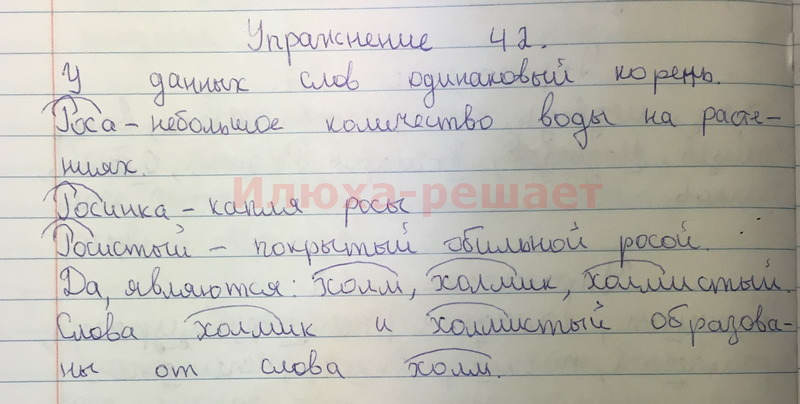 Упражнение 42.
У данных слов одинаковый корень.
Роса - небольшое количество воды на расте-
ниях.
Илюха-решает
Росинка - капля росы
Росистый - покрытый обильной росой.
Да, являются: холм, холмик, холмистый.
Слова холмик и холмистый образова-
ны от слова холм.